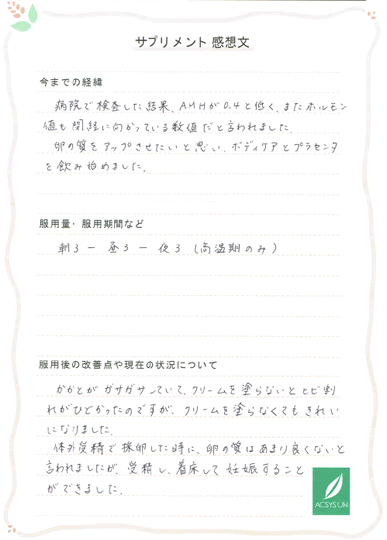 サプリメント 感想文
今までの経緯
病院で検査した結果、AMHが0.4と低く、またホルモン
値も閉経に向かっている数値だと言われました。
卵の質をアップさせたいと思い、ボディケアとプラセンタ
を飲み始めました。
服用量・服用期間など
朝3 ー 昼3 ー 夜3 (高温期のみ)
服用後の改善点や現在の状況について
かかとがガサガサしていて、クリームを塗らないとヒビ割
れがひどかったのですが、クリームを塗らなくてもきれい
になりました。
体外受精で採卵した時に、卵の質はあまり良くないと
言われましたが、受精し、着床して妊娠すること
ができました。
ACSYS UN